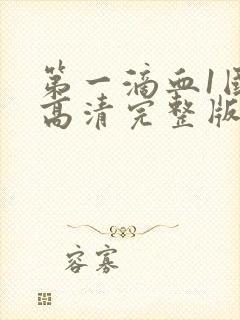 第一滴血1国
高清完整版
容寡